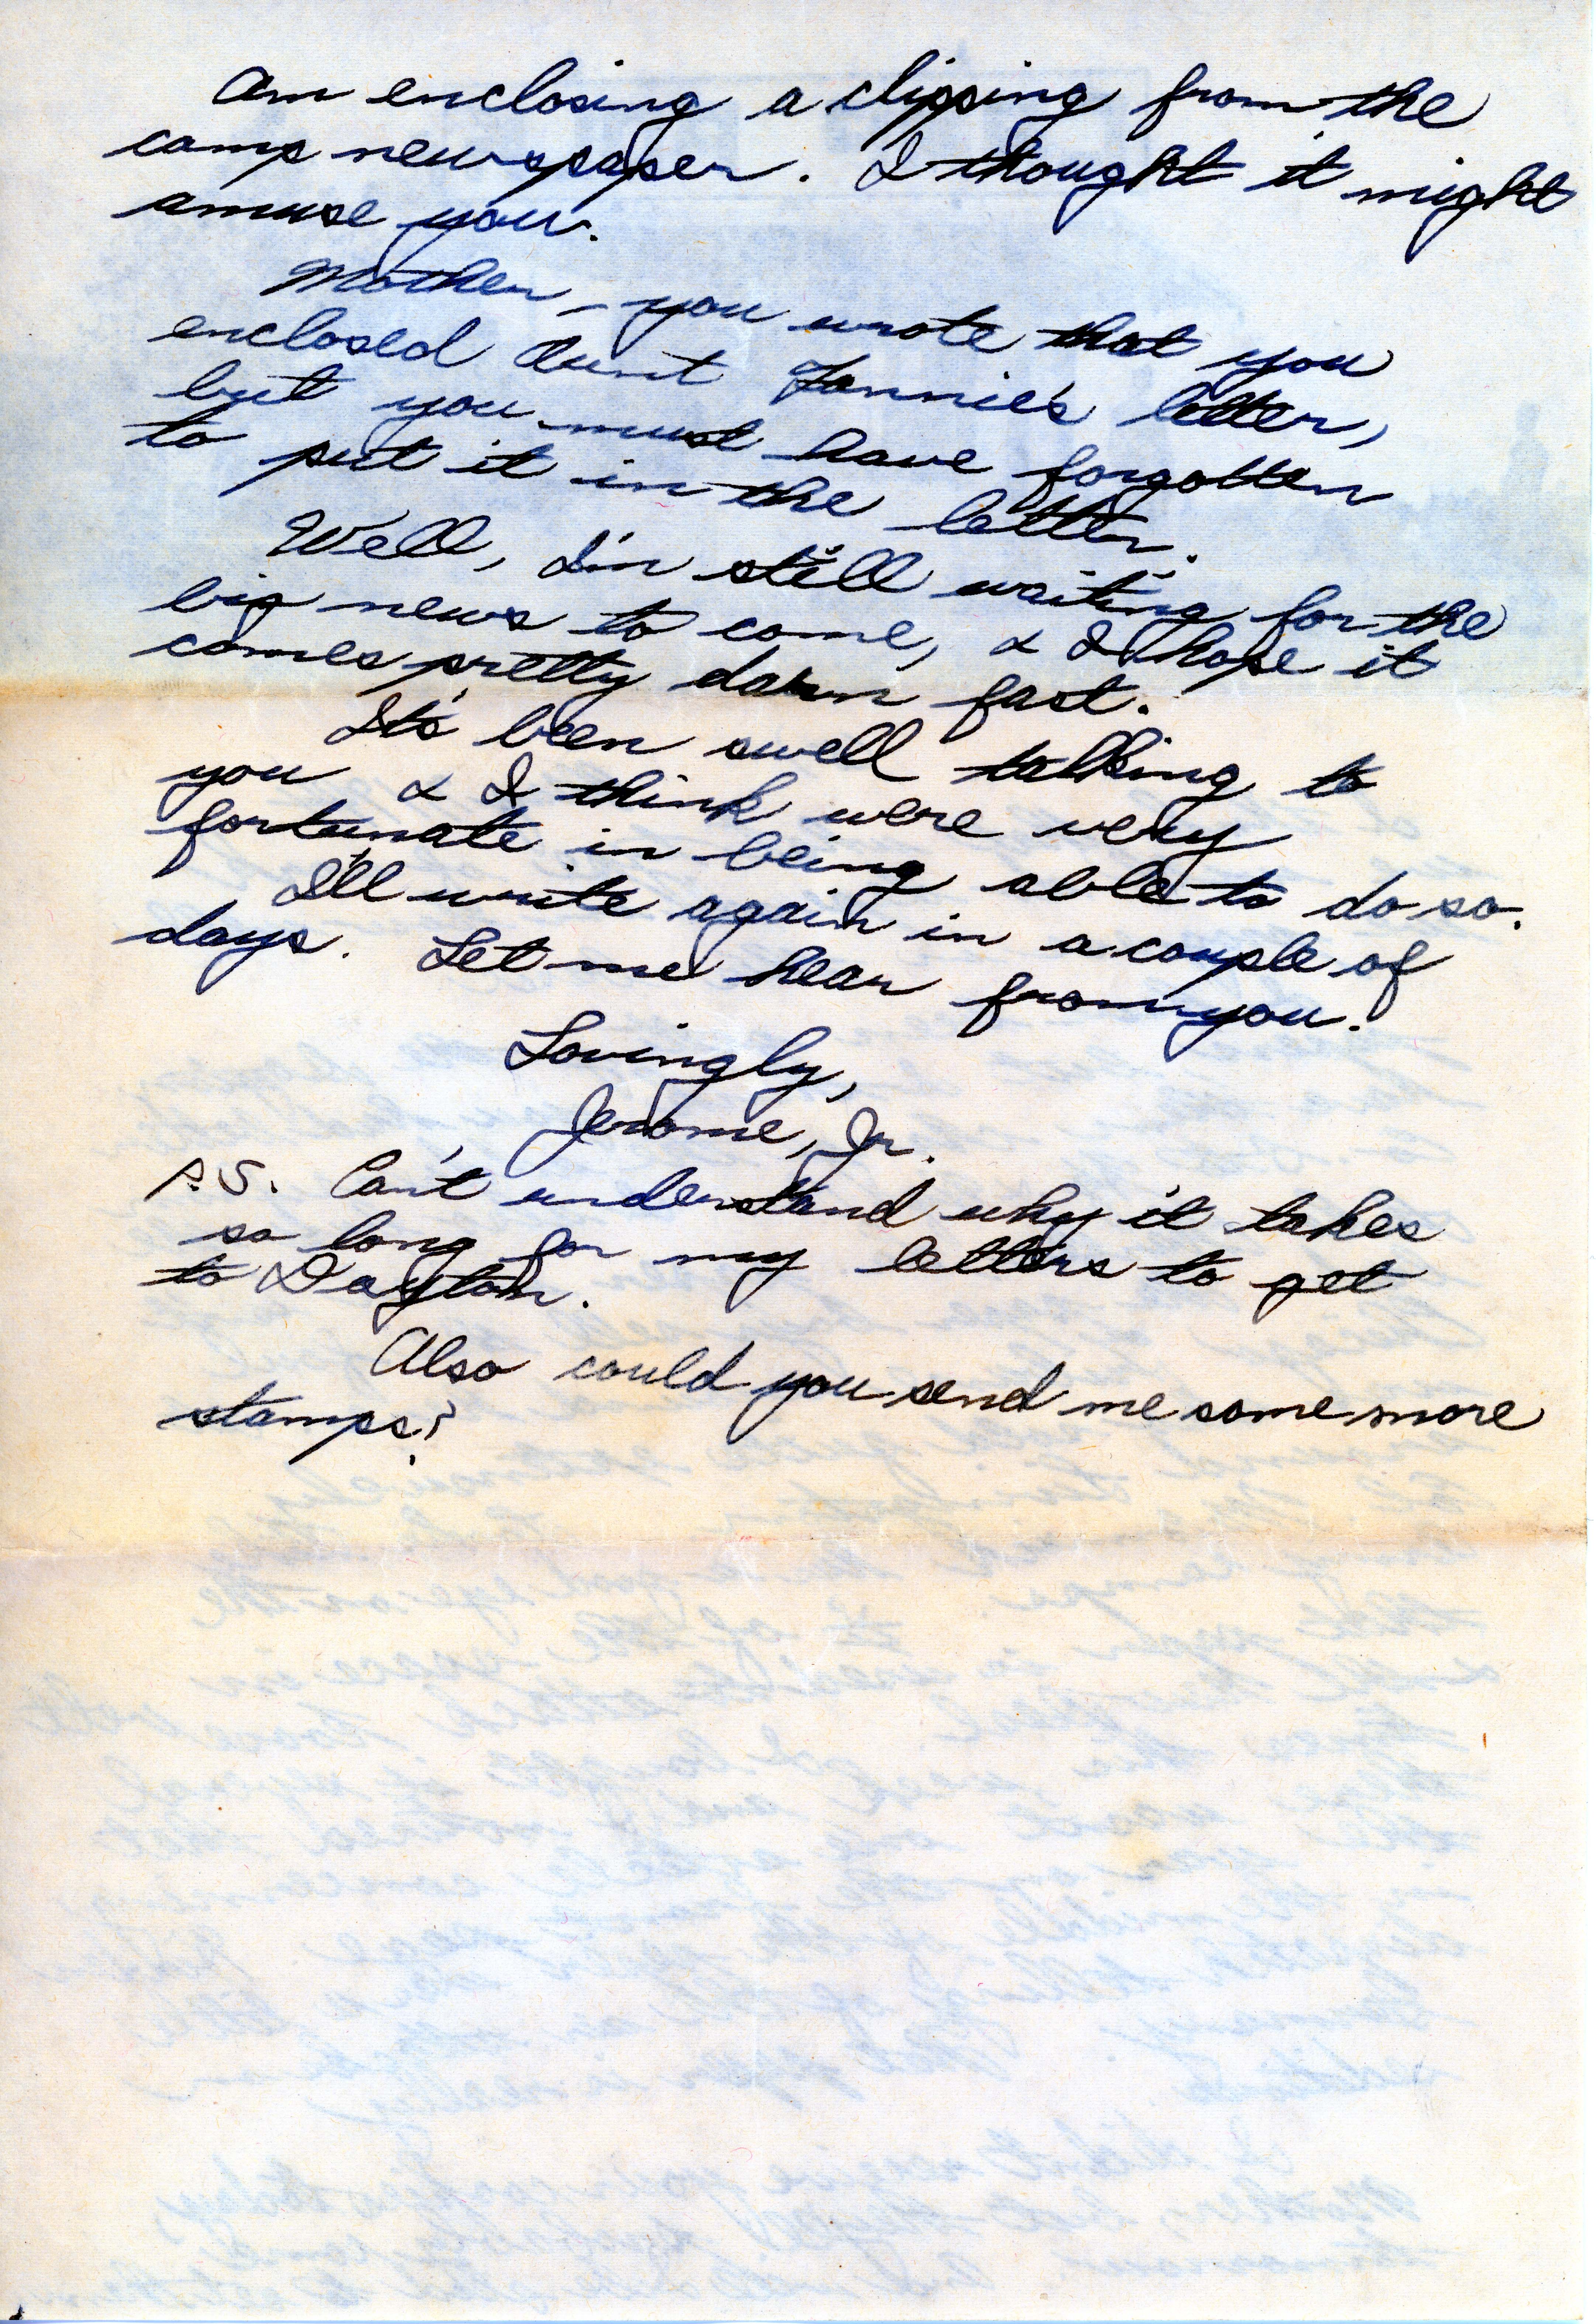 Am enclosing a clipping from the
camp newspaper. I thought it might
amuse you.
Mother, - you wrote that you
enclosed Aunt Fannie's letter,
but you must have forgotten
to put it in the letter.
Well, I'm still waiting for the
big news to come, & I hope it
comes pretty damn fast.
It's been swell talking to
you & I think were very
fortunate in being able to do so.
I'll write again in a couple of
days. Let me hear from you.
Lovingly,
Jerome, Jr.
P.S. Can't understand why it takes
so long for my letters to get
to Dayton.
Also could you send me some more
stamps?